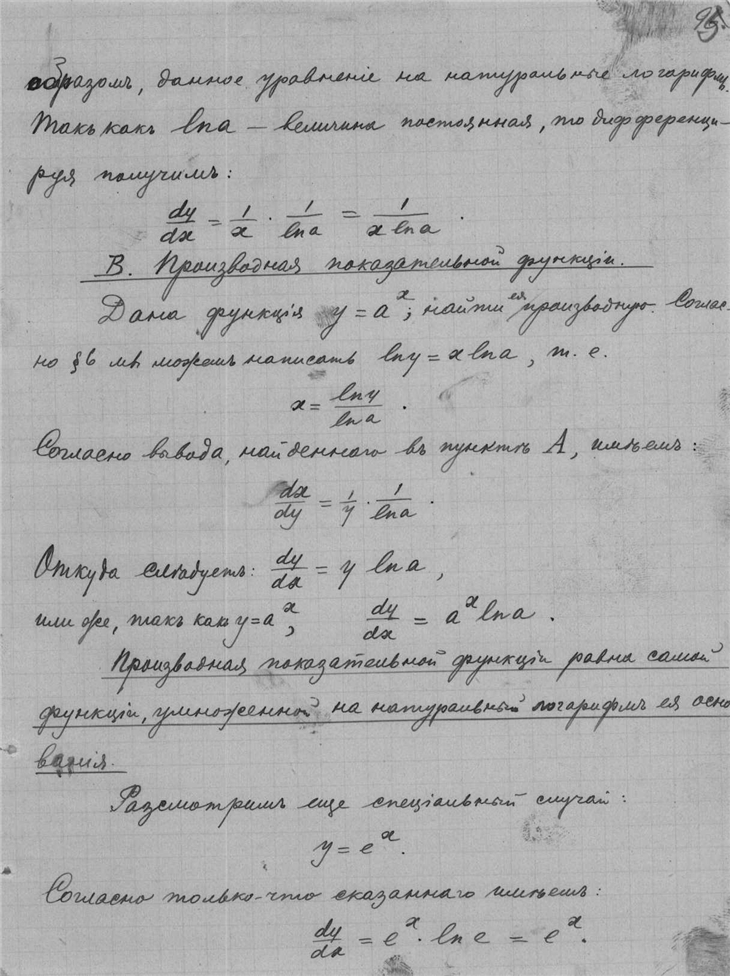 образомъ, данное уравненіе на натуральные логарифмъ.
Такъ какъ lna — величина постоянная, то дифференци-
руя получимъ:
dy/dx = 1/x · 1/lna = 1/(x lna).
B. Производная показательной функціи.
Дана функція y = a^x; найти ея производную. Соглас-
но §6 мы можемъ написать lny = x lna, т. е.
x = lny/lna.
Согласно вывода, найденнаго въ пунктѣ A, имѣемъ:
dx/dy = 1/y · 1/lna.
Откуда слѣдуетъ: dy/dx = y lna,
или же, такъ какъ y = a^x, dy/dx = a^x lna.
Производная показательной функціи равна самой
функціи, умноженной на натуральный логарифмъ ея осно
ванія.
Разсмотримъ еще спеціальный случай:
y = e^x.
Согласно только-что сказаннаго имѣемъ:
dy/dx = e^x · lne = e^x.